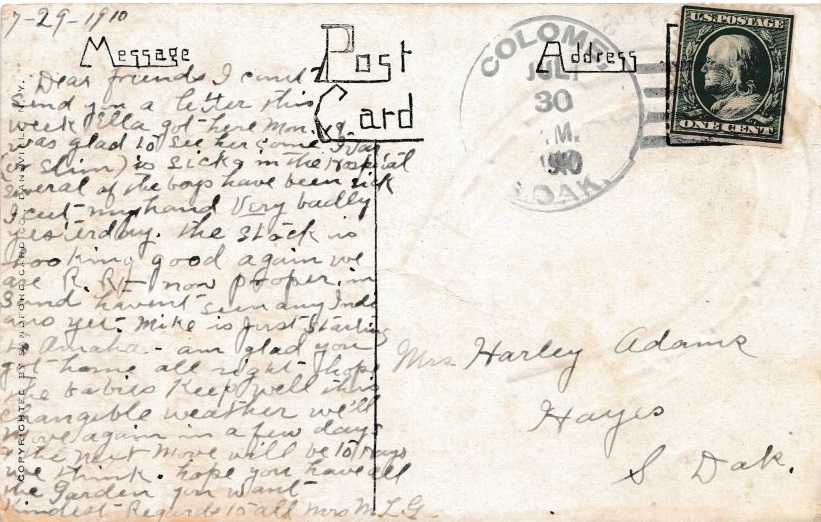 7-29-1910
Message
Post
Card
Address
Dear friends I can't
send you a letter this
week Ella got here Mon. &
was glad to see her come
(or Slim) is sick & in the Hospital
several of the boys have been sick
I cut my hand Very badly
yesterday. the stock is
looking good again we
are R. R. now proper in
S and havent seen any Indi
ans yet. Mike is just starting
to Omaha - am glad you
got home all right. hope
the babies keep well this
changible weather we'll
move again in a few days
& the next move will be to Hays
we think. hope you have all
the Garden you want
Kindest Regards to all Mrs M. L. G.
COPYRIGHTED BY SANDFORD CARD CO. DANSVILLE, N.Y.
COLOME
JUL
30
M.
1910
S. DAK.
U.S. POSTAGE
ONE CENT
Mrs Harley Adams
Hayes
S Dak.